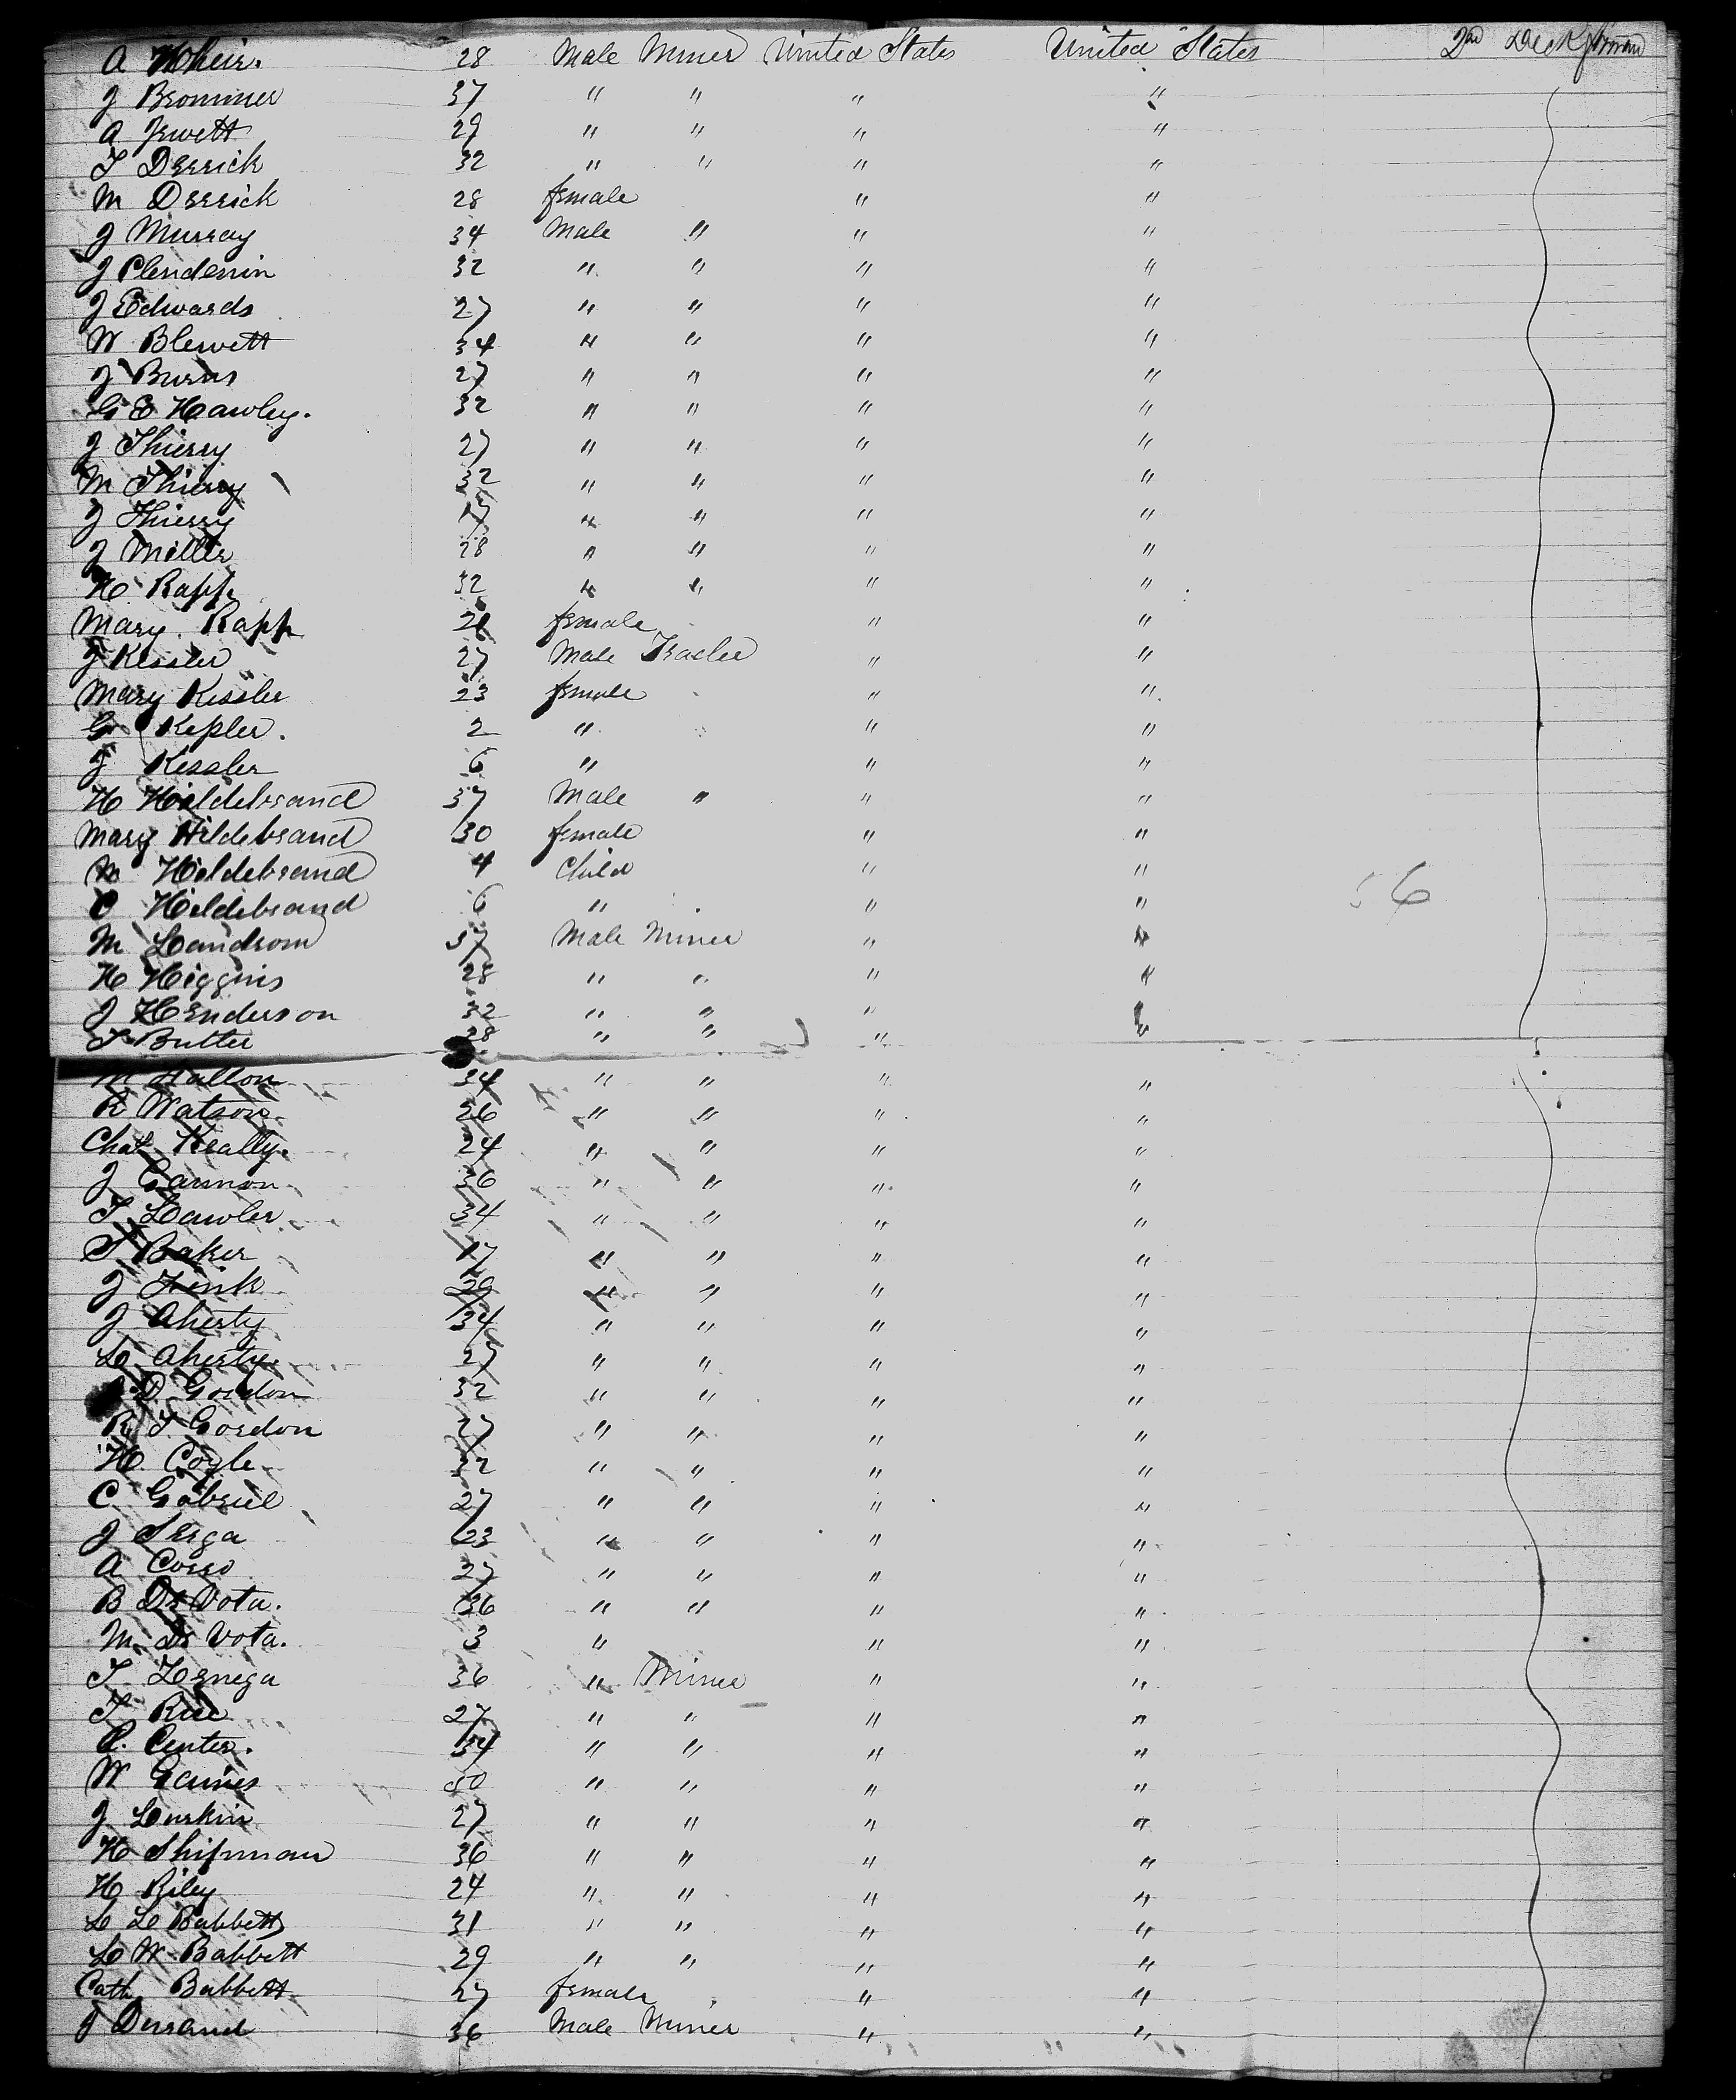 A Wheir. 28 Male Miner United States United States 2nd Deck forward
J Brommer 37 " " " "
A Jewett 29 " " " "
T Derrick 32 " " " "
M Derrick 28 female " "
J Murray 34 Male " " "
J Clendenin 32 " " " "
J Edwards 27 " " " "
W Blewett 34 " " " "
J Burns 27 " " " "
G E Hawley. 32 " " " "
J Thierry 27 " " " "
M Thierry 32 " " " "
J Thierry 17 " " " "
J Miller 28 " " " "
H Rapp 32 " " " "
Mary Rapp 28 female " "
J Kessler 27 Male Trader " "
Mary Kessler 23 female " "
G Kepler. 2 " " "
J Kessler 6 " " "
H Hildebrand 37 Male " " "
Mary Hildebrand 30 female " "
M Hildebrand 4 Child " "
C Hildebrand 6 " " " 56
M Landrom 37 Male Miner " "
H Higgins 28 " " " "
J Henderson 32 " " " "
T Butler 28 " " " "
M Hallon 34 " " " "
R Watson 26 " " " "
Chas Kealty. 24 " " " "
J Garmon 36 " " " "
T Lawler 34 " " " "
T Baker 17 " " " "
J Fink 29 " " " "
J Aherty 34 " " " "
L Aherty 27 " " " "
D Gordon 32 " " " "
R T Gordon 27 " " " "
H. Cogle 32 " " " "
C Gabriel 27 " " " "
J Serga 23 " " " "
A Corso 27 " " " "
B De Vota. 36 " " " "
M De Vota. 3 " " "
T Zenega 36 " Miner " "
T Rue 27 " " " "
C. Center. 34 " " " "
W Gaines 50 " " " "
J Lurkin 27 " " " "
H Shipman 36 " " " "
H Riley 24 " " " "
L L Babbett 31 " " " "
L W Babbett 29 " " " "
Cath Babbett 27 female " "
J Durand 36 Male Miner " "